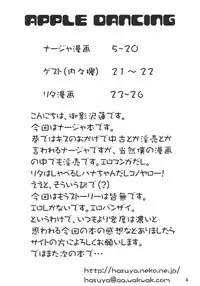 APPLE DANCING
ナージャ漫画 5~20
ゲスト(内々様) 21~22
リタ漫画 23~26
こんにちは、御影沢蓮です。
今回はナージャ本です。
巷ではキスのおかげで中古とか淫売とか
言われるナージャですが、当然僕の漫画
の中でも淫売です。エロマンガだし。
リタはしゃべるしハナちゃんだしコノヤロー!
ええと、そういう訳で(?)
今回はもうストーリーは皆無です。
エロしかないです。エロバンザイ。
というわけで、いつもより密度は濃いと
思われる今回の本の感想などありましたら
サイトの方によろしくお願いします。
ではまた次の本で…
http://hasuya.neko.ne.jp/
hasuya@aa.wakwak.com
4